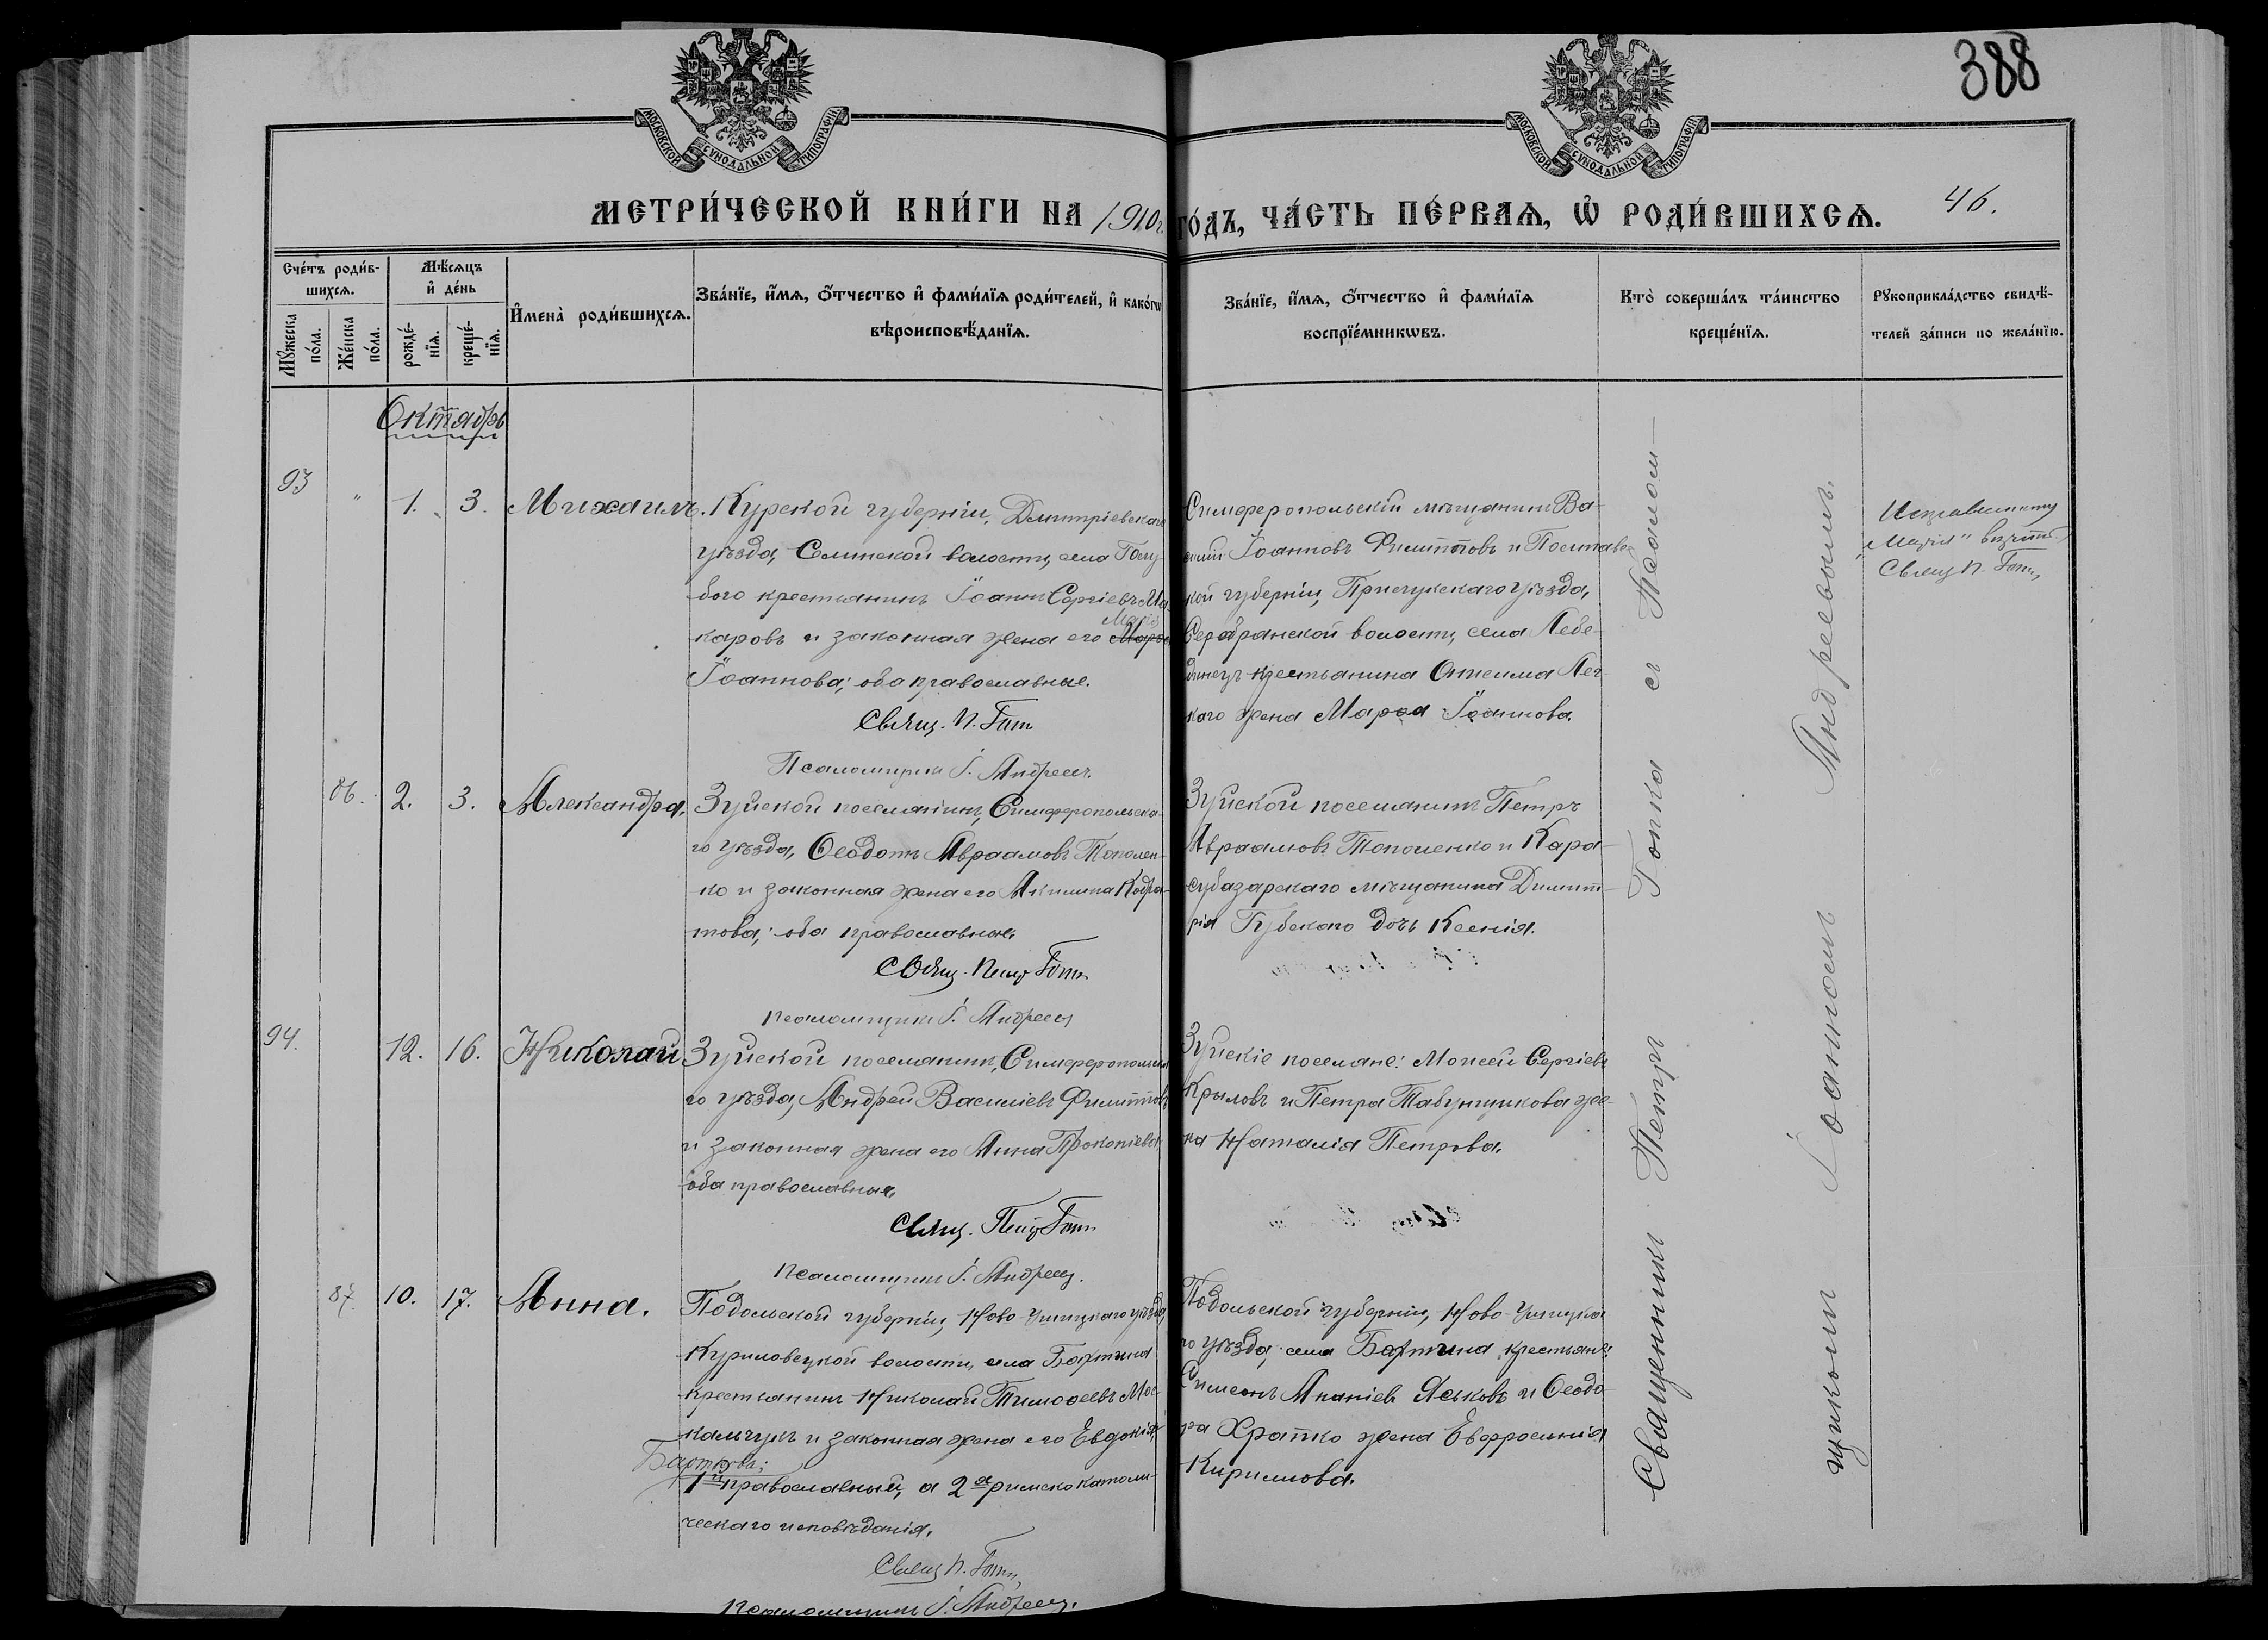 388
МОСКОВСКОЙ СѴНОДАЛЬНОЙ ТИПОГРАФІИ
МОСКОВСКОЙ СѴНОДАЛЬНОЙ ТИПОГРАФІИ
МЕТРИ́ЧЕСКОЙ КНИ́ГИ НА 1910 г.
ГО́ДЪ, ЧА́СТЬ ПЕ́РВАѦ, Ѡ҆ РОДИ́ВШИХСѦ.
46.
Сче́тъ роди́в-
шихсѧ.
Мꙋ́жеска по́ла.
Же́нска по́ла.
Мѣ́сѧцъ
и҆ де́нь
рожде́-
нїѧ.
креще́-
нїѧ.
И҆мена̀ роди́вшихсѧ.
Зва́нїе, и҆́мѧ, ѻ҆́тчество и҆ фами́лїѧ роди́телей, и҆ како́гѡ
вѣроисповѣ́данїѧ.
Зва́нїе, и҆́мѧ, ѻ҆́тчество и҆ фами́лїѧ
воспрїе́мникѡвъ.
Кто̀ соверша́лъ та́инство
креще́нїѧ.
Рꙋкоприкла́дство свидѣ́-
телей за́писи по жела́нїю.
Октябрь
93
"
1.
3.
Михаилъ.
Курской губерніи, Дмитріевскаго
уѣзда, Селинской волости, села Голу-
бого крестьянинъ Іоаннъ Сергіевъ Ма-
каровъ и законная жена его Марѳа
Марія
Іоаннова; оба православные.
Свящ. П. Гопк
Псаломщикъ І. Андреевъ.
Симферопольскій мѣщанинъ Ва-
силій Іоанновъ Филипповъ и Полтавс-
кой губерніи, Прилукскаго уѣзда,
Серебрянской волости, села Лебе-
динецъ крестьянина Онисима Лег-
каго жена Марѳа Іоаннова.
Исправленному
"Марія" вѣрить
Свящ. П. Гопк
86.
2.
3.
Александра.
Зуйской поселянинъ, Симферопольска-
го уѣзда, Ѳеодотъ Авраамовъ Тополен-
ко и законная жена его Акилина Кодра-
това; оба православные.
Свящ. Петр Гопк
Псаломщикъ І. Андреевъ
Зуйской поселянинъ Петръ
Авраамовъ Тополенко и Кара-
субазарскаго мѣщанина Димит-
рія Губскаго дочь Ксенія.
94.
12.
16.
Николай
Зуйской поселянинъ, Симферопольска-
го уѣзда, Андрей Василіевъ Филипповъ
и законная жена его Анна Прокопіева
оба православные.
Свящ. Петр Гопк
Псаломщикъ І. Андреевъ.
Зуйскіе поселяне: Моисей Сергіевъ
Крыловъ и Петра Табунщикова же-
на Наталія Петрова.
87
10.
17.
Анна.
Подольской губерніи, Ново-Ушицкаго уѣзда,
Куриловецкой волости, села Бахтина
крестьянинъ Николай Тимоѳеевъ Мос-
кальчукъ и законная жена его Евдокія
1й православный, а 2я римско католи-
ческаго исповѣданія.
Свящ. П. Гопк
Псаломщикъ І. Андреевъ.
Подольской губерніи, Ново-Ушицка-
го уѣзда, села Бахтина крестьяне:
Симеонъ Ананіевъ Яськовъ и Ѳеодо-
ра Храпко жена Евфросинія
Кириллова.
Священникъ Петръ Гопка съ псалом-
щикомъ Іоанномъ Андреевымъ.